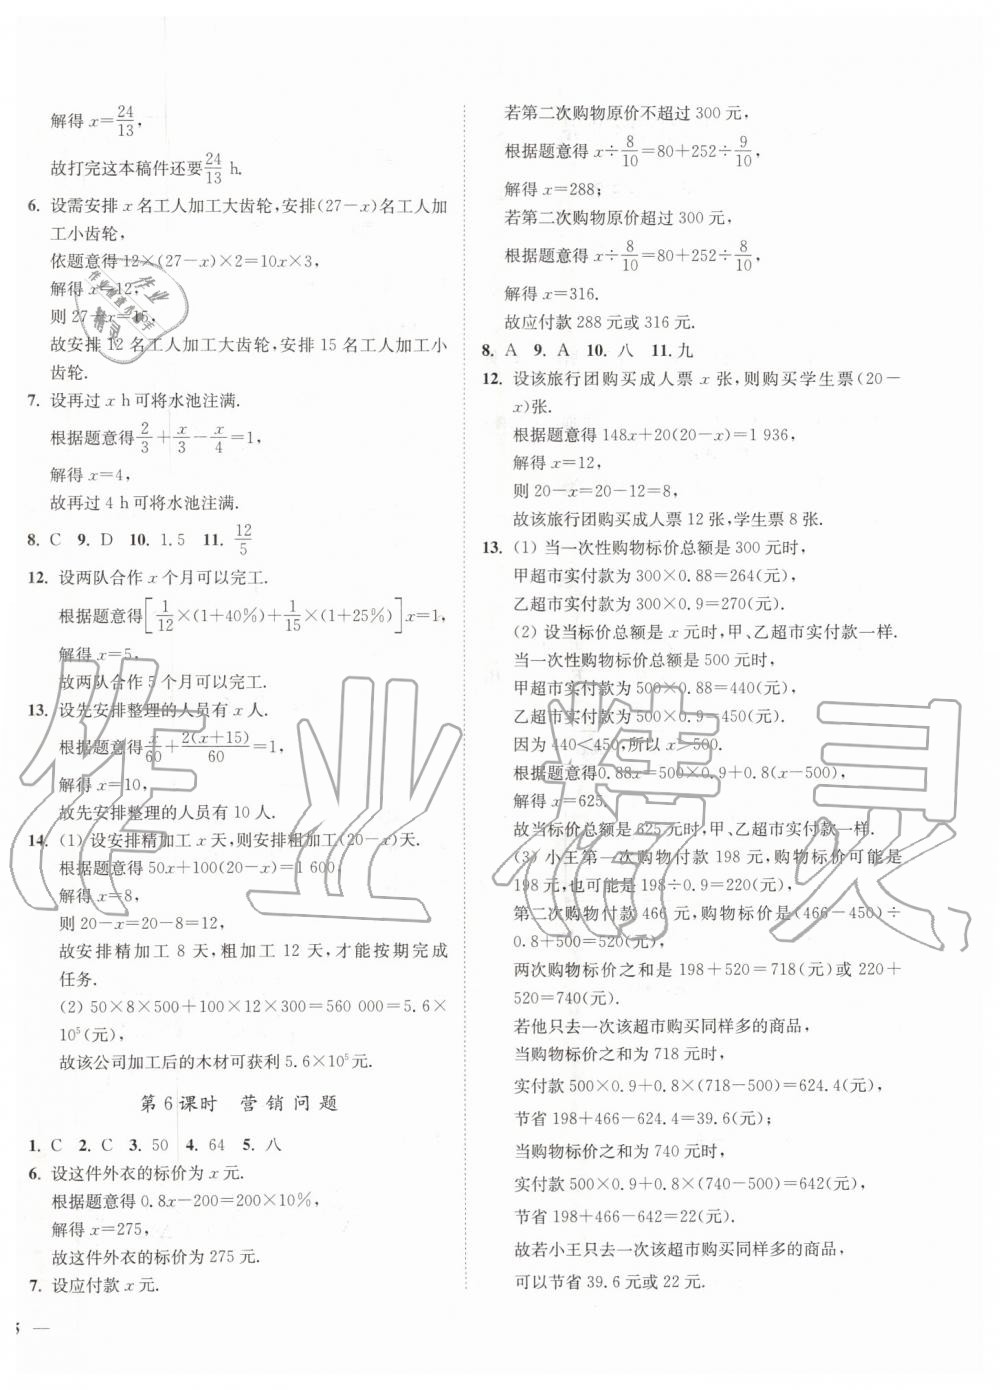 解得 x=24/13,
故打完这本稿件还要 24/13 h.
6. 设需安排 x 名工人加工大齿轮,安排(27-x)名工人加
工小齿轮,
依题意得 12×(27-x)×2=10x×3,
解得 x=12,
则 27-x=15,
故安排 12 名工人加工大齿轮,安排 15 名工人加工小
齿轮.
7. 设再过 x h 可将水池注满.
根据题意得 2/3+x/3-x/4=1,
解得 x=4,
故再过 4 h 可将水池注满.
8. C 9. D 10. 1.5 11. 12/5
12. 设两队合作 x 个月可以完工.
根据题意得[1/12×(1+40%)+1/15×(1+25%)]x=1,
解得 x=5,
故两队合作 5 个月可以完工.
13. 设先安排整理的人员有 x 人.
根据题意得 x/60+2(x+15)/60=1,
解得 x=10,
故先安排整理的人员有 10 人.
14. (1) 设安排精加工 x 天,则安排粗加工(20-x)天.
根据题意得 50x+100(20-x)=1 600,
解得 x=8,
则 20-x=20-8=12,
故安排精加工 8 天,粗加工 12 天,才能按期完成
任务.
(2) 50×8×500+100×12×300=560 000=5.6×
10⁵(元),
故该公司加工后的木材可获利 5.6×10⁵元.
第6课时 营销问题
1. C 2. C 3. 50 4. 64 5. 八
6. 设这件外衣的标价为 x 元.
根据题意得 0.8x-200=200×10%,
解得 x=275,
故这件外衣的标价为 275 元.
7. 设应付款 x 元.
5 —
若第二次购物原价不超过 300 元,
根据题意得 x÷8/10=80+252÷9/10,
解得 x=288;
若第二次购物原价超过 300 元,
根据题意得 x÷8/10=80+252÷8/10,
解得 x=316.
故应付款 288 元或 316 元.
8. A 9. A 10. 八 11. 九
12. 设该旅行团购买成人票 x 张,则购买学生票(20-
x)张.
根据题意得 148x+20(20-x)=1 936,
解得 x=12,
则 20-x=20-12=8,
故该旅行团购买成人票 12 张,学生票 8 张.
13. (1) 当一次性购物标价总额是 300 元时,
甲超市实付款为 300×0.88=264(元),
乙超市实付款为 300×0.9=270(元).
(2) 设当标价总额是 x 元时,甲、乙超市实付款一样.
当一次性购物标价总额是 500 元时,
甲超市实付款为 500×0.88=440(元),
乙超市实付款为 500×0.9=450(元).
因为 440<450,所以 x>500.
根据题意得 0.88x=500×0.9+0.8(x-500),
解得 x=625.
故当标价总额是 625 元时,甲、乙超市实付款一样.
(3) 小王第一次购物付款 198 元,购物标价可能是
198 元,也可能是 198÷0.9=220(元),
第二次购物付款 466 元,购物标价是(466-450)÷
0.8+500=520(元),
两次购物标价之和是 198+520=718(元)或 220+
520=740(元).
若他只去一次该超市购买同样多的商品,
当购物标价之和为 718 元时,
实付款 500×0.9+0.8×(718-500)=624.4(元),
节省 198+466-624.4=39.6(元);
当购物标价之和为 740 元时,
实付款 500×0.9+0.8×(740-500)=642(元),
节省 198+466-642=22(元).
故若小王只去一次该超市购买同样多的商品,
可以节省 39.6 元或 22 元.
作业精灵